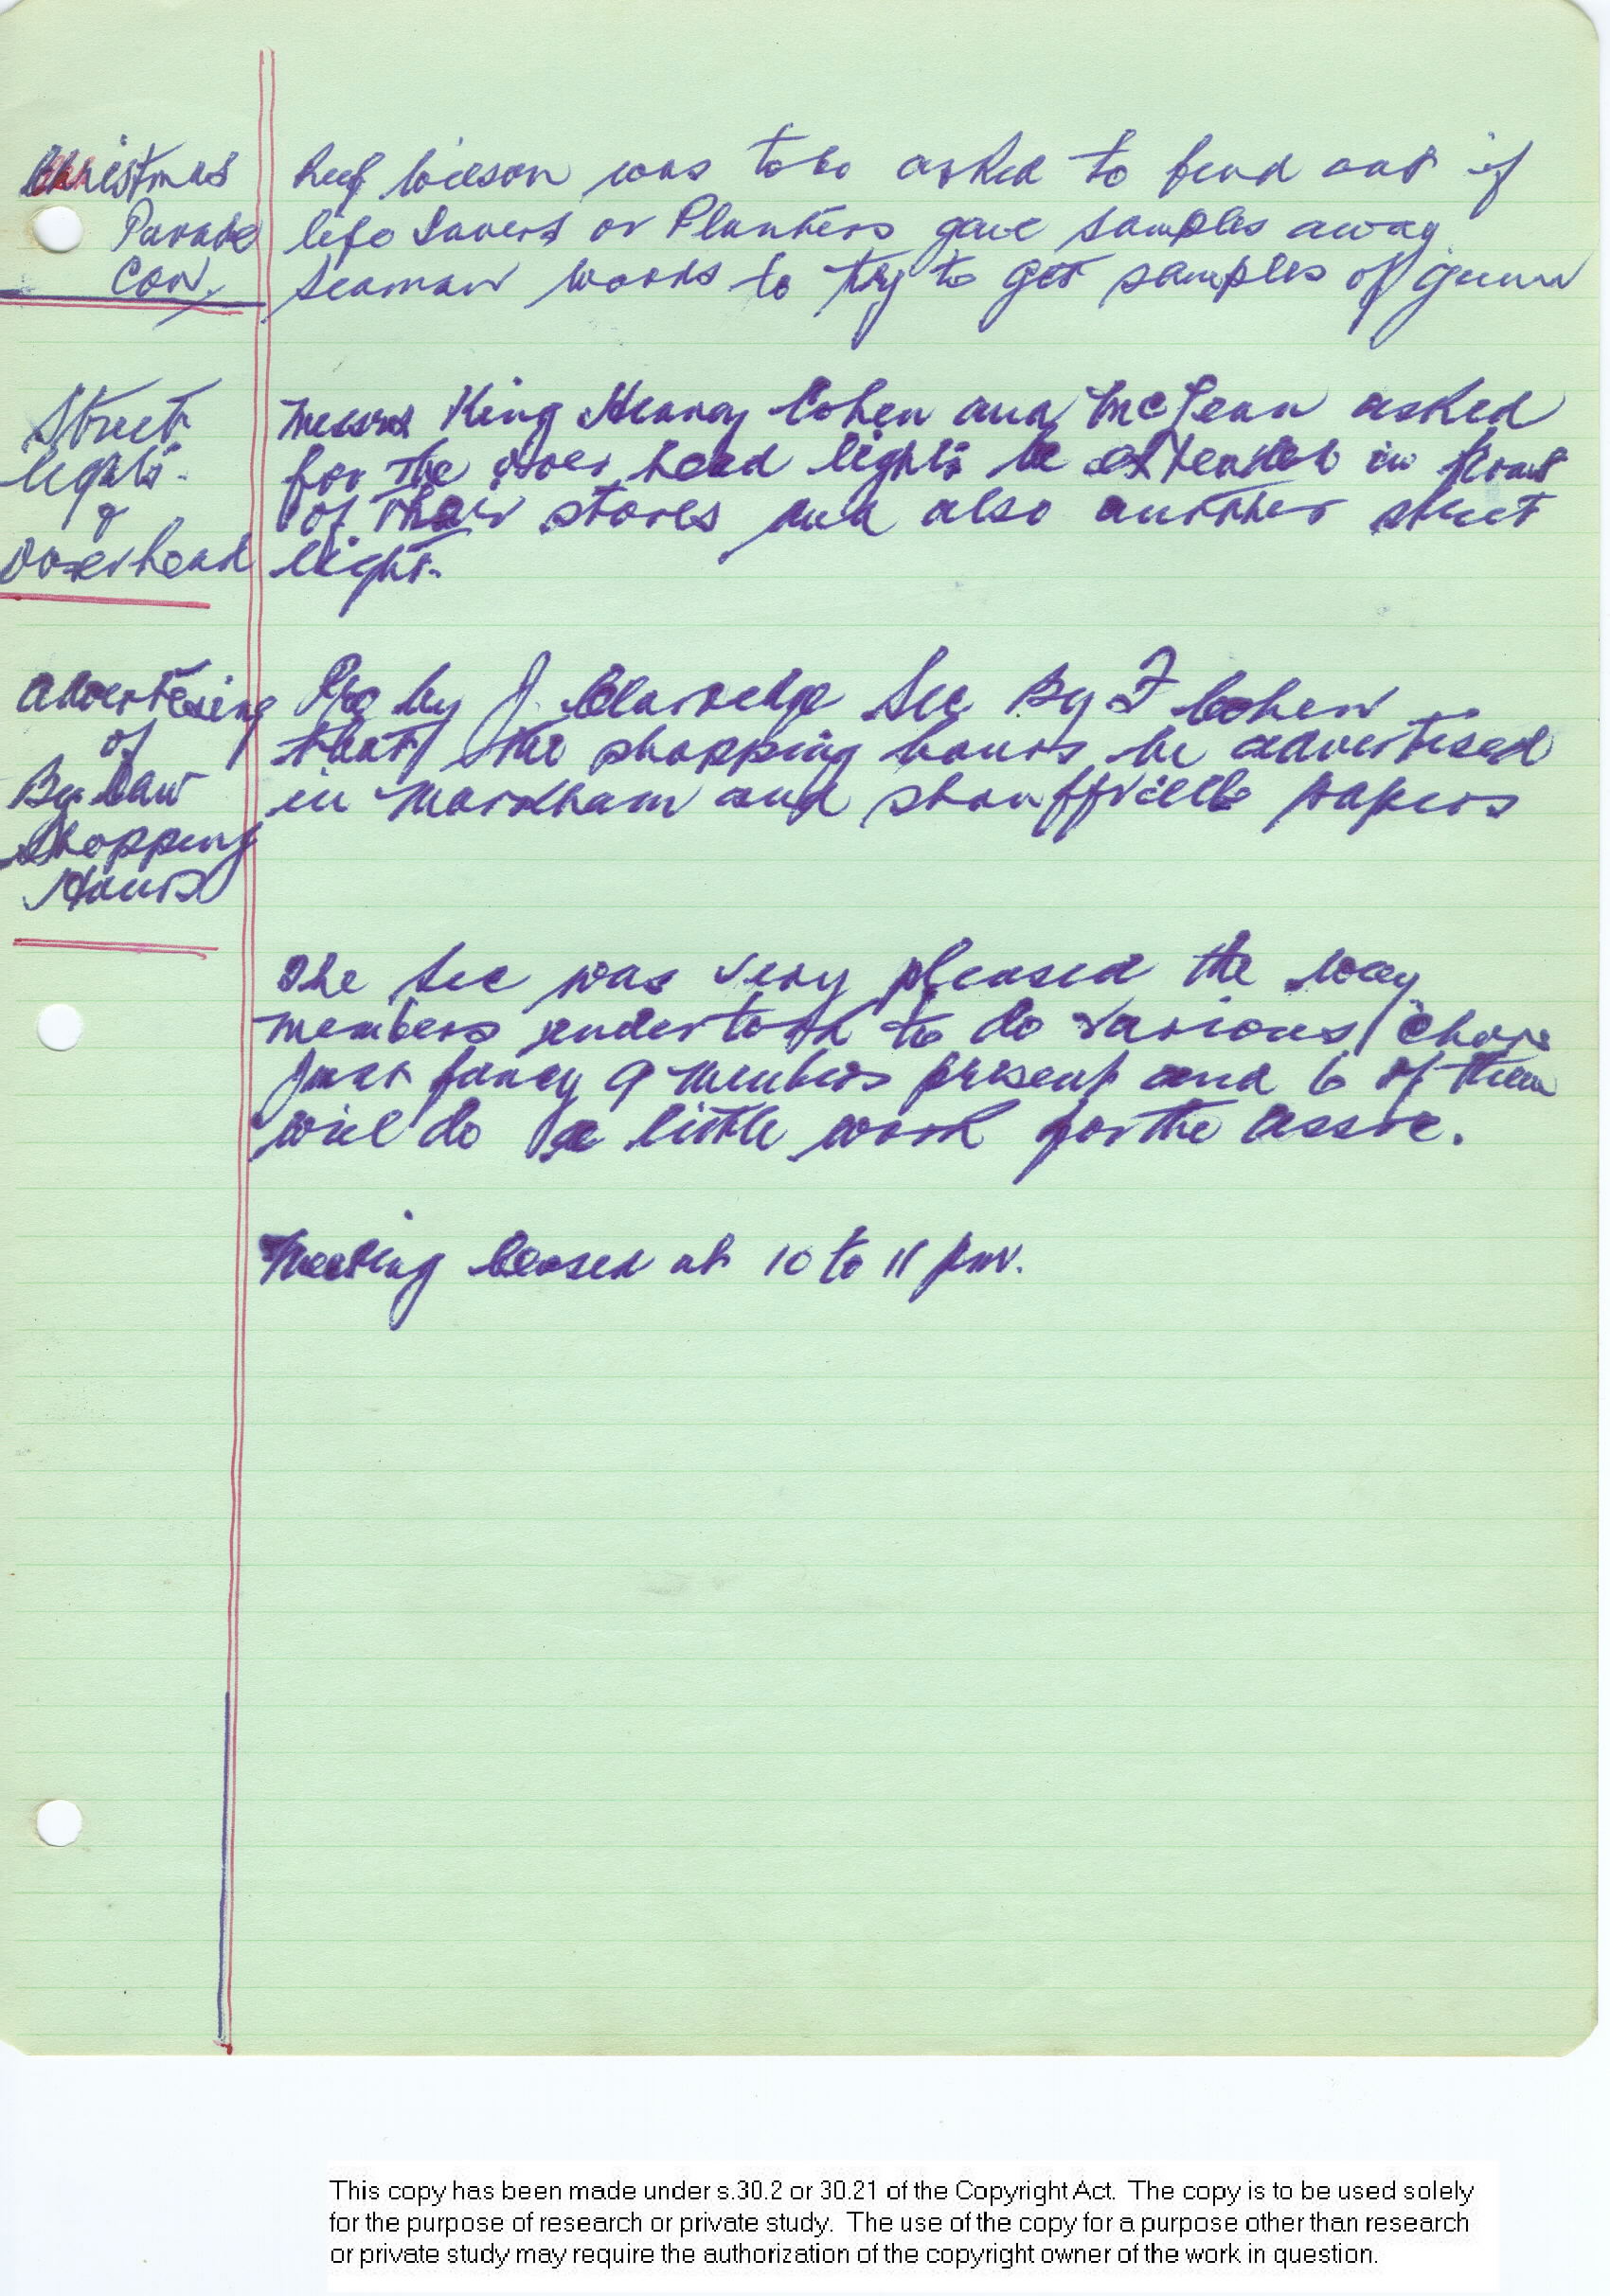 Christmas
Parade
Con.
Wilson was to be asked to find out if
life Savers or Planters gave samples away
Seaman woods to try to get samples of gum
Street
lights
&
overhead
Messrs King Henry Cohen and McLean asked
for the over head lights be extended in front
of their stores and also another street
light.
Advertising
of
By Law
Shopping
Hours
Pro by J. Clarredge Sec By F Cohen
that the shopping hours be advertised
in Markham and Stouffville papers
The Sec was very pleased the way
members undertook to do various chores
Just fancy 9 members present and 6 of them
will do a little work for the Assoc.
Meeting Closed at 10 to 11 pm.
This copy has been made under s.30.2 or 30.21 of the Copyright Act. The copy is to be used solely
for the purpose of research or private study. The use of the copy for a purpose other than research
or private study may require the authorization of the copyright owner of the work in question.